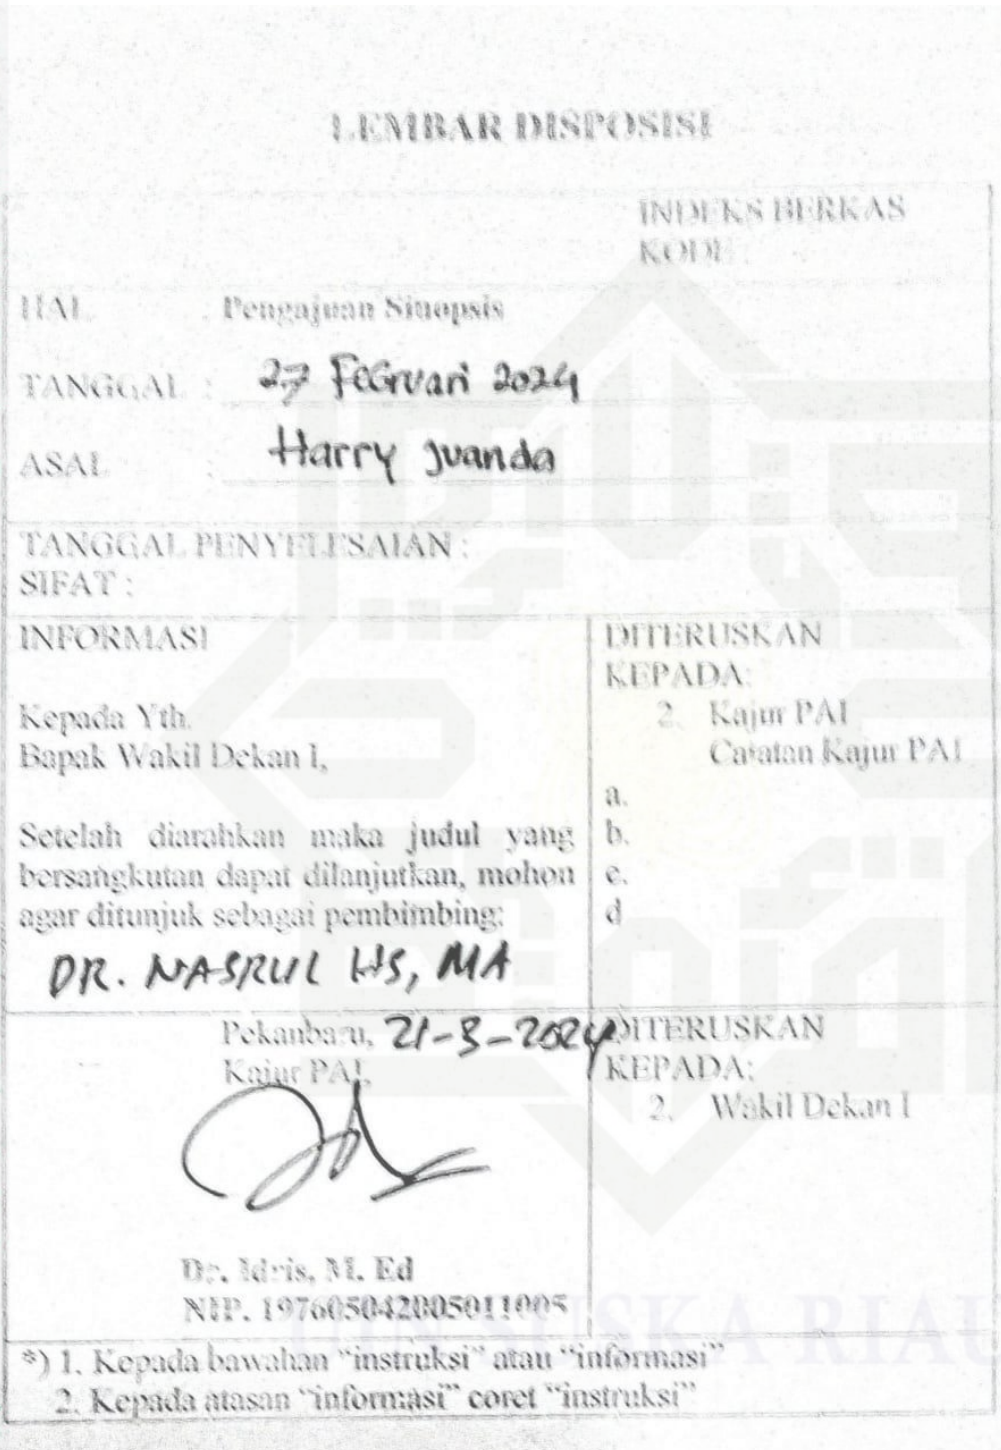 LEMBAR DISPOSISI
INDEKS BERKAS
KODE :
HAL : Pengajuan Sinopsis
TANGGAL : 27 Februari 2024
ASAL : Harry Juanda
TANGGAL PENYELESAIAN :
SIFAT :
INFORMASI
Kepada Yth.
Bapak Wakil Dekan I,
Setelah diarahkan maka judul yang
bersangkutan dapat dilanjutkan, mohon
agar ditunjuk sebagai pembimbing:
DR. NASRUL HS, MA
DITERUSKAN
KEPADA:
2. Kajur PAI
Catatan Kajur PAI
a.
b.
c.
d
Pekanbaru, 21-3-2024
Kajur PAI,
Dr. Idris, M. Ed
NIP. 197605042005011005
DITERUSKAN
KEPADA:
2. Wakil Dekan I
*) 1. Kepada bawahan "instruksi" atau "informasi"
2. Kepada atasan "informasi" coret "instruksi"
UIN SUSKA RIAU